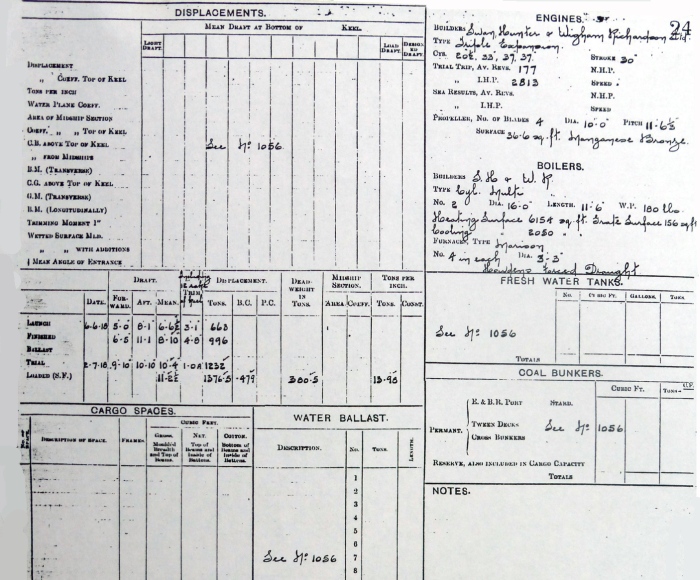 DISPLACEMENTS.
MEAN DRAFT AT BOTTOM OF KEEL.
LIGHT DRAFT.
LOAD DRAFT.
DESIGNED DRAFT
DISPLACEMENT
" COEFF. TOP OF KEEL
TONS PER INCH
WATER PLANE COEFF.
AREA OF MIDSHIP SECTION
COEFF. " " TOP OF KEEL
C.B. ABOVE TOP OF KEEL
See No 1056.
" FROM MIDSHIPS
B.M. (TRANSVERSE)
C.G. ABOVE TOP OF KEEL
G.M. (TRANSVERSE)
B.M. (LONGITUDINALLY)
TRIMMING MOMENT 1"
WETTED SURFACE MLD.
" " WITH ADDITIONS
½ MEAN ANGLE OF ENTRANCE
DRAFT.
DISPLACEMENT.
DEAD-WEIGHT IN TONS.
MIDSHIP SECTION.
TONS PER INCH.
DATE. FORWARD. AFT. MEAN. TONS. B.C. P.C. AREA COEFF. TONS. CONST.
LAUNCH 6-6-18 5-0 8-1 3-1 663
FINISHED 6-5 11-1 8-10 4-8 996
BALLAST
TRIAL 2-7-18 9-10 10-10 10-4 1-0A 1232
LOADED (S.F.) 1376.5 .479 380.5 13.95
CARGO SPACES.
CUBIC FEET.
DESCRIPTION OF SPACE. FRAMES.
GROSS. Moulded Breadth and Top of Beams.
NET. Top of Beams and Inside of Battens.
COTTON. Bottom of Beams and Inside of Battens.
WATER BALLAST.
DESCRIPTION. No. TONS. LENGTH.
1
2
3
4
5
6
See No 1056 7
8
24
ENGINES.
BUILDERS Swan Hunter & Wigham Richardson Ltd.
TYPE Triple Expansion.
CYR. STROKE 30"
TRIAL TRIP, AV. REVS. 177 N.H.P.
" I.H.P. 2813 SPEED
SEA RESULTS, AV. REVS. N.H.P.
" I.H.P. SPEED
PROPELLER, NO. OF BLADES 4 DIA. 10-0 PITCH
SURFACE 36.6 sq. ft. Manganese Bronze.
BOILERS.
BUILDERS S.H & W.R.
TYPE Cyl. Multi
No. 2 DIA. 16-0 LENGTH. 11-6 W.P. 180 lbs
Heating Surface 6154 sq. ft. Grate Surface 156 sq ft
Cooling " 2050 "
FURNACES, TYPE Morison
No. 4 in each DIA. 3-3
Howdens Forced Draught
FRESH WATER TANKS.
No. CUBIC FT. GALLONS. TONS
See No 1056
TOTALS
COAL BUNKERS.
CUBIC FT. TONS
E. & B.R. PORT STARD.
PERMANT. TWEEN DECKS See No 1056
CROSS BUNKERS
RESERVE, ALSO INCLUDED IN CARGO CAPACITY
TOTALS
NOTES.